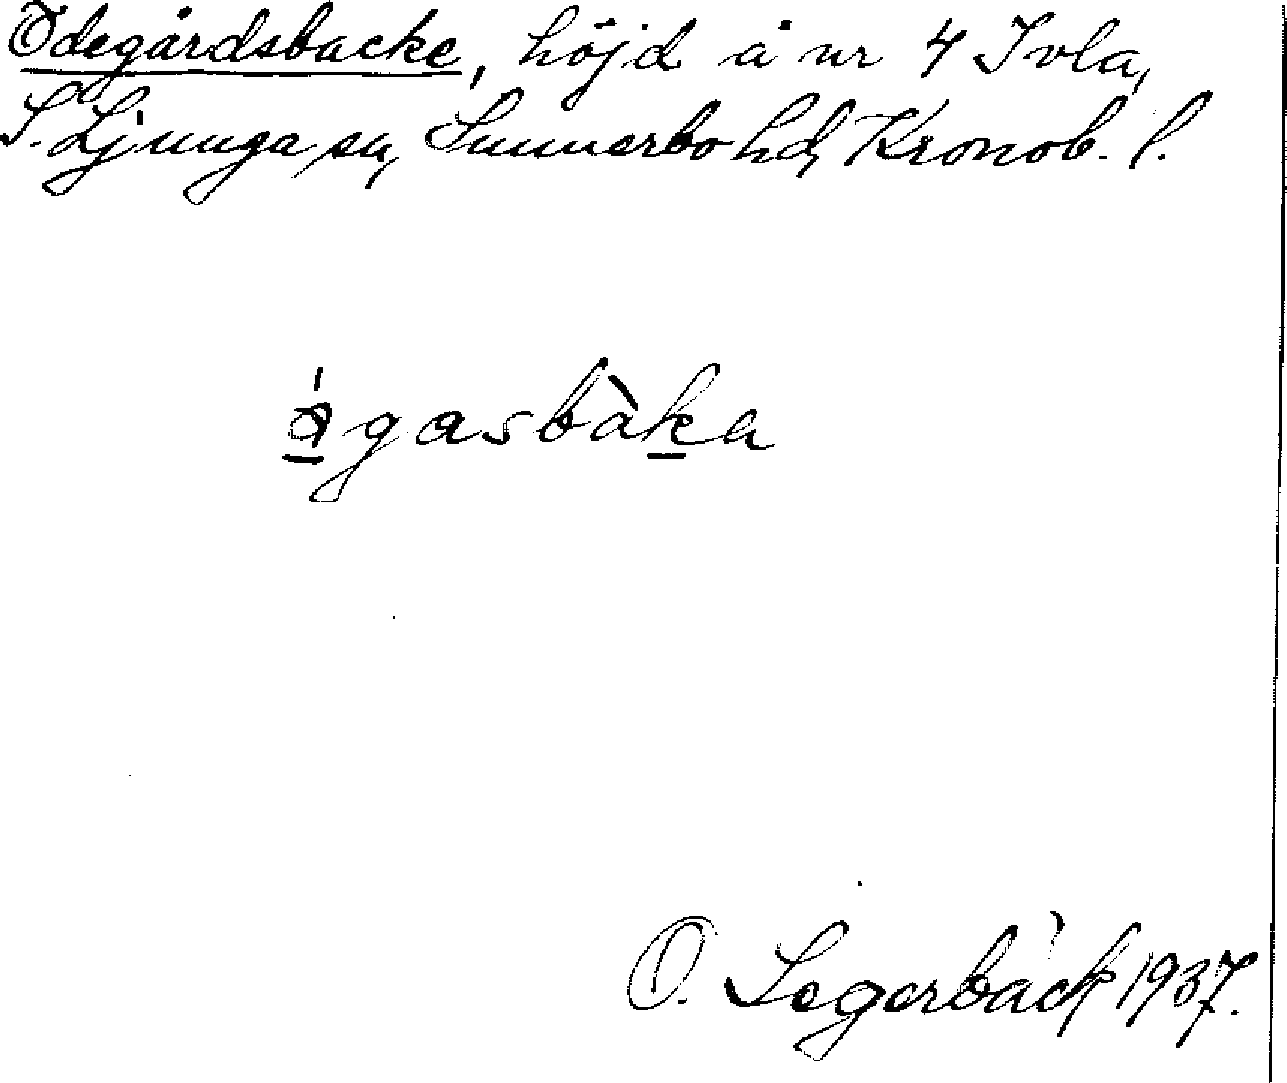 Ödegårdsbacke, höjd å nr 4 Ivla,
S. Ljunga sn, Sunnerbo hd, Kronob. l.
ǿgasbàka
O. Segerbäck 1937.